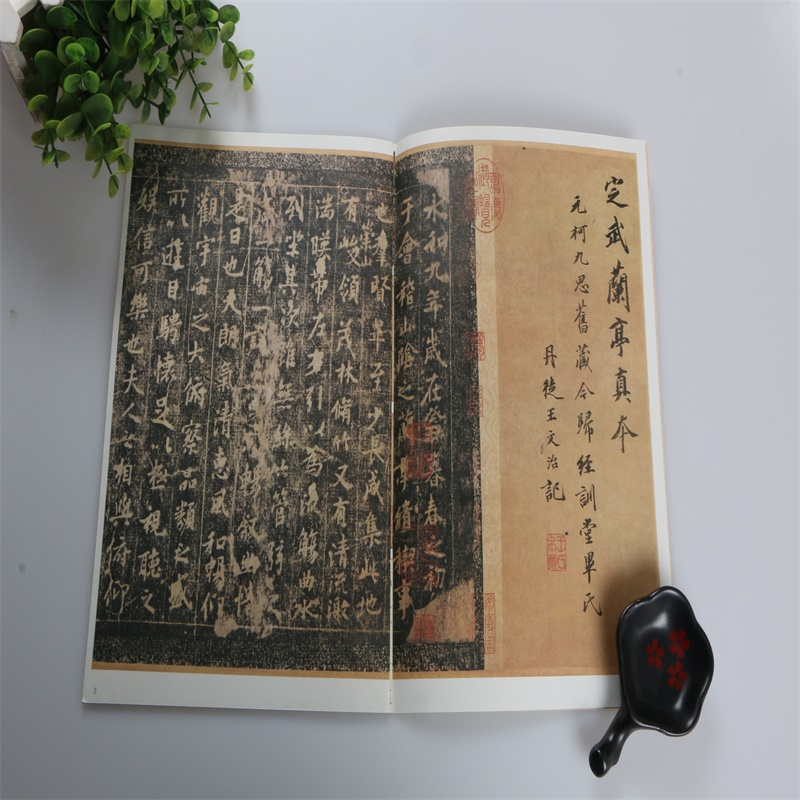 定武蘭亭真本
元柯九思舊藏今歸經訓堂畢氏
丹徒王文治記
永和九年歲在癸暮春之初
于會稽山陰之蘭亭脩稧事
也羣賢畢至少長咸集此地
有崇山峻領茂林脩竹又有清流激
湍暎帶左右引以為流觴曲水
列坐其次雖無絲竹管弦之
盛一觴一詠暢敘幽情
是日也天朗氣清惠風和暢仰
觀宇宙之大俯察品類之盛
所以遊目騁懷足以極視聽之
娛信可樂也夫人之相與俯仰
3